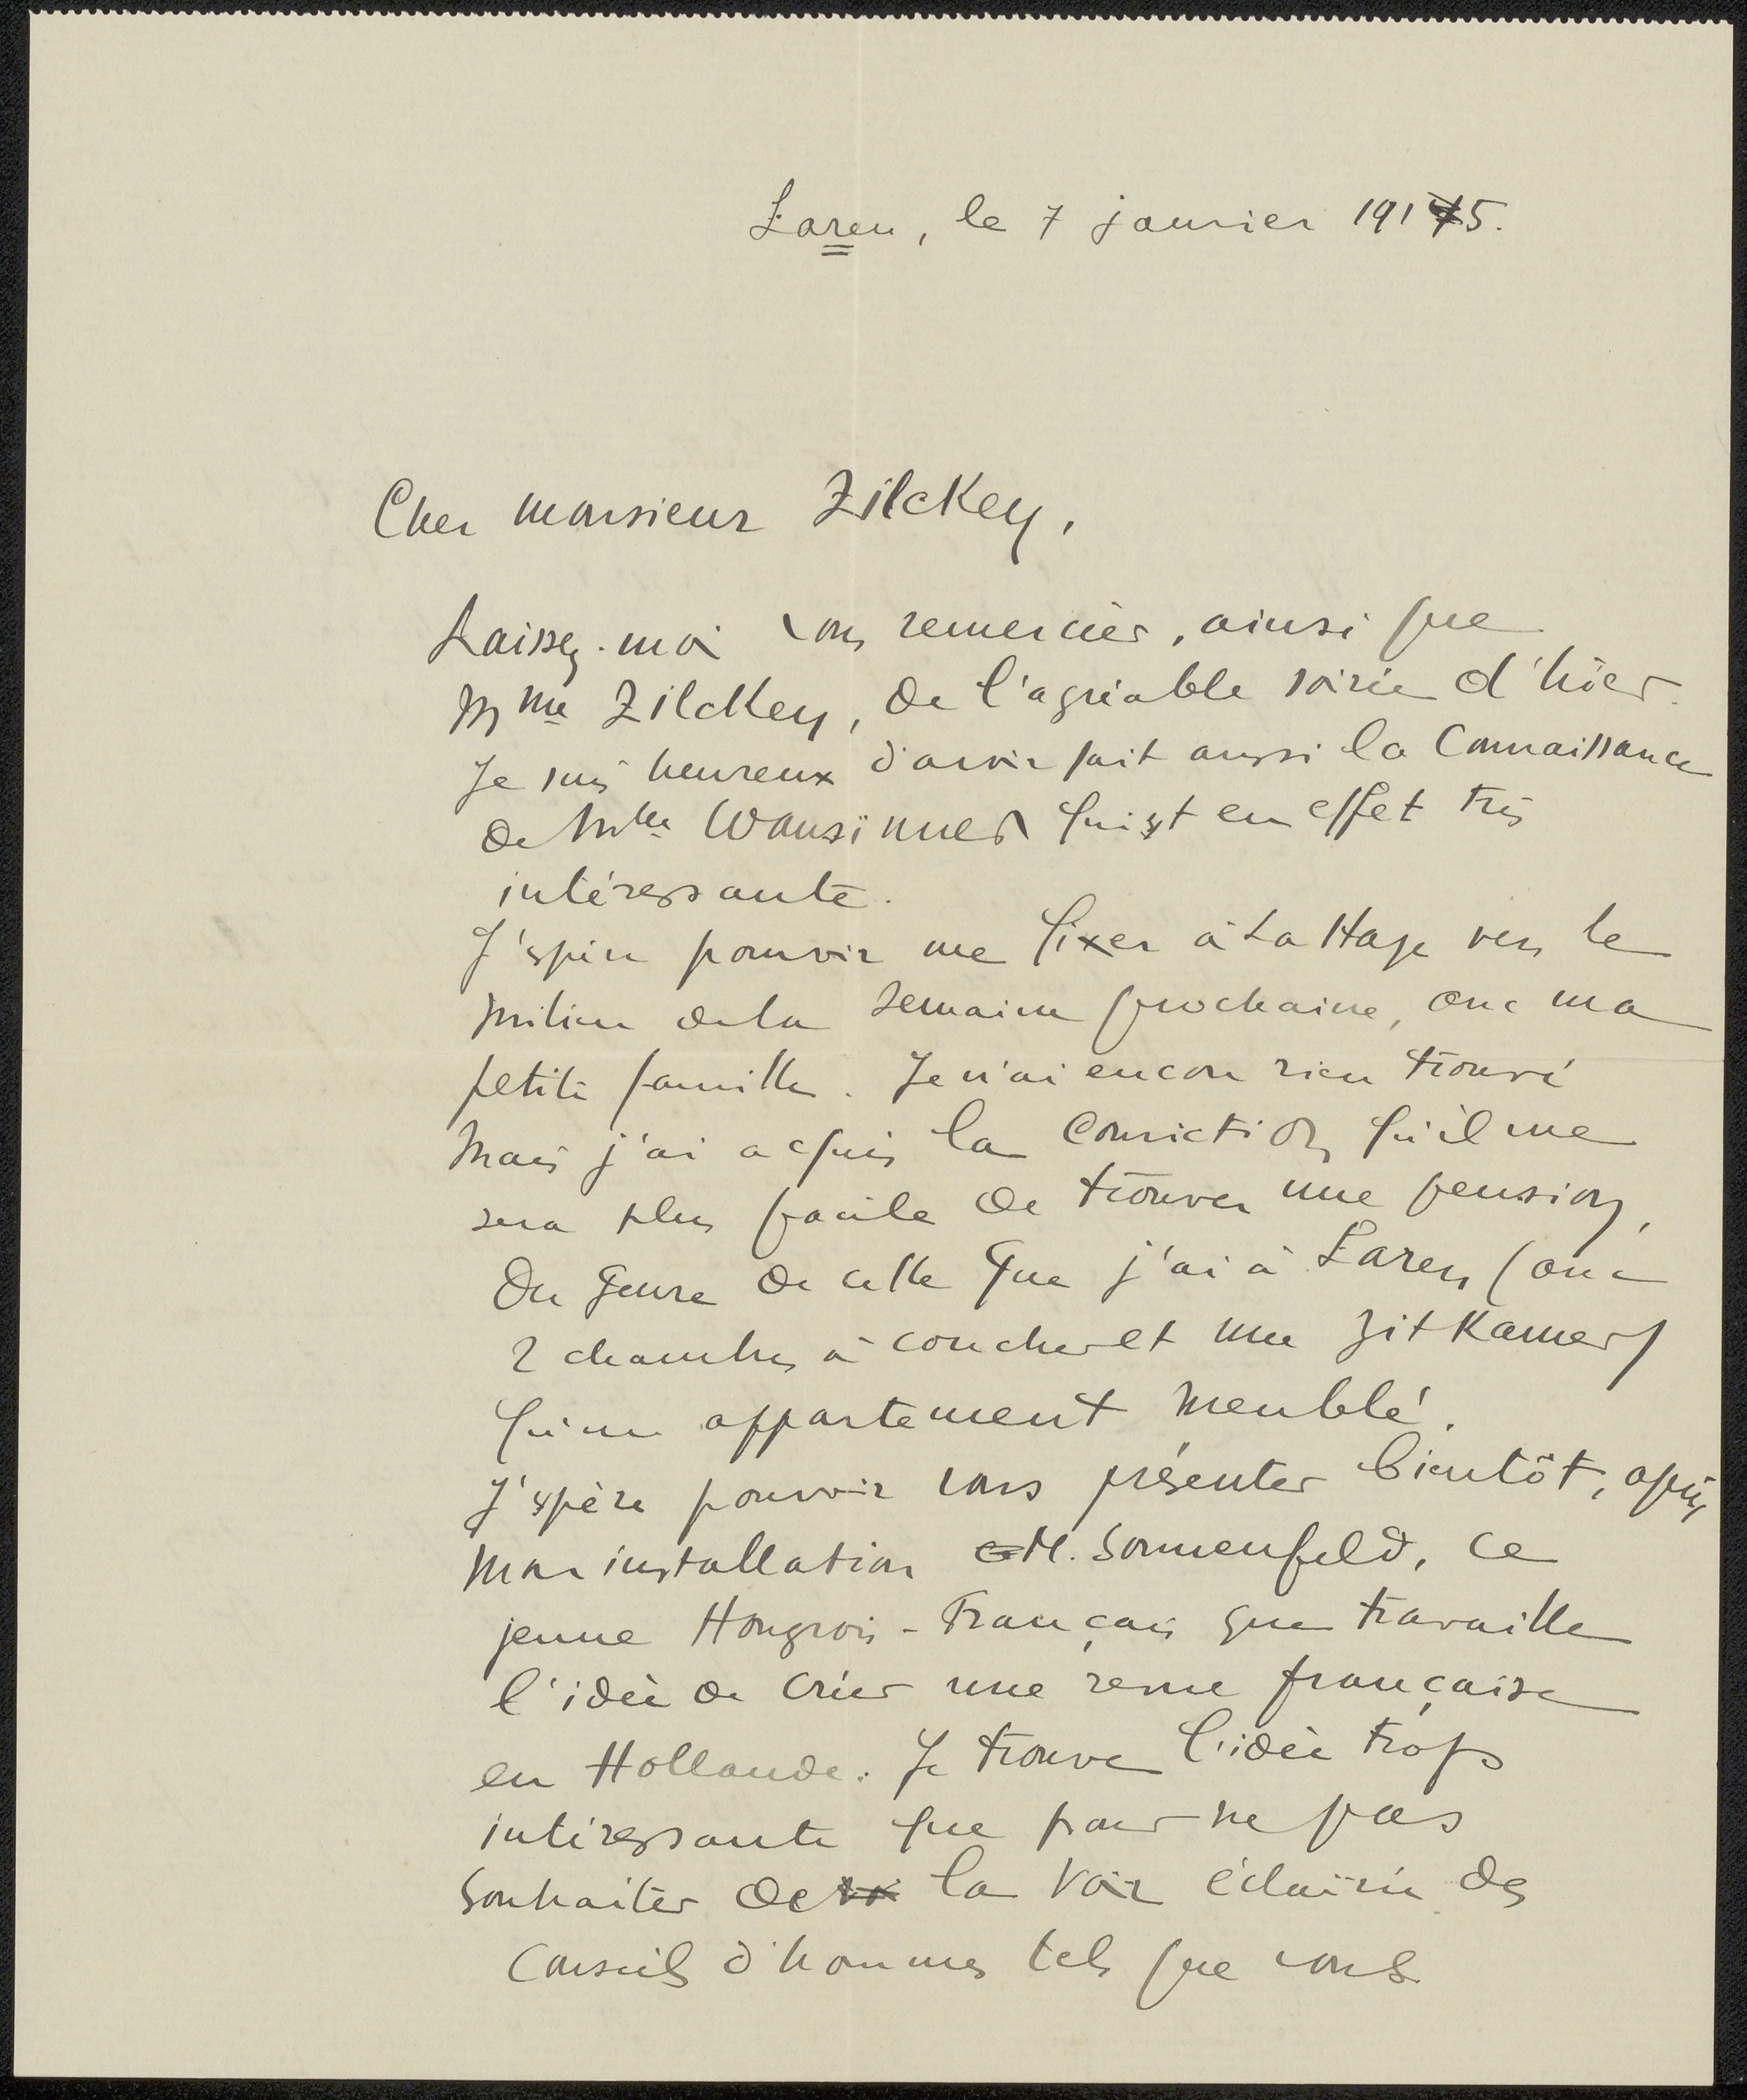 Laren, le 7 janvier 1915.
Cher monsieur Zilckey,
Laissez-moi vous remercier, ainsi que
Mme Zilckey, de l'agréable soirée d'hier.
Je suis heureux d'avoir fait aussi la connaissance
de Mlle qui est en effet très
intéressante.
J'espère pouvoir me fixer à La Haye vers le
milieu de la semaine prochaine, avec ma
petite famille. Je n'ai encore rien trouvé
mais j'ai acquis la conviction qu'il me
sera plus facile de trouver une pension,
du genre de celle que j'ai à Laren (avec
2 chambres à coucher et une zitkamer)
qu'un appartement meublé.
J'espère pouvoir vous présenter bientôt, après
mon installation M. Sonnenfeld, ce
jeune Hongrois-Français que travaille
l'idée de créer une revue française
en Hollande. Je trouve l'idée trop
intéressante que pour ne pas
souhaiter de la voir éclairée des
conseils d'hommes tels que vous